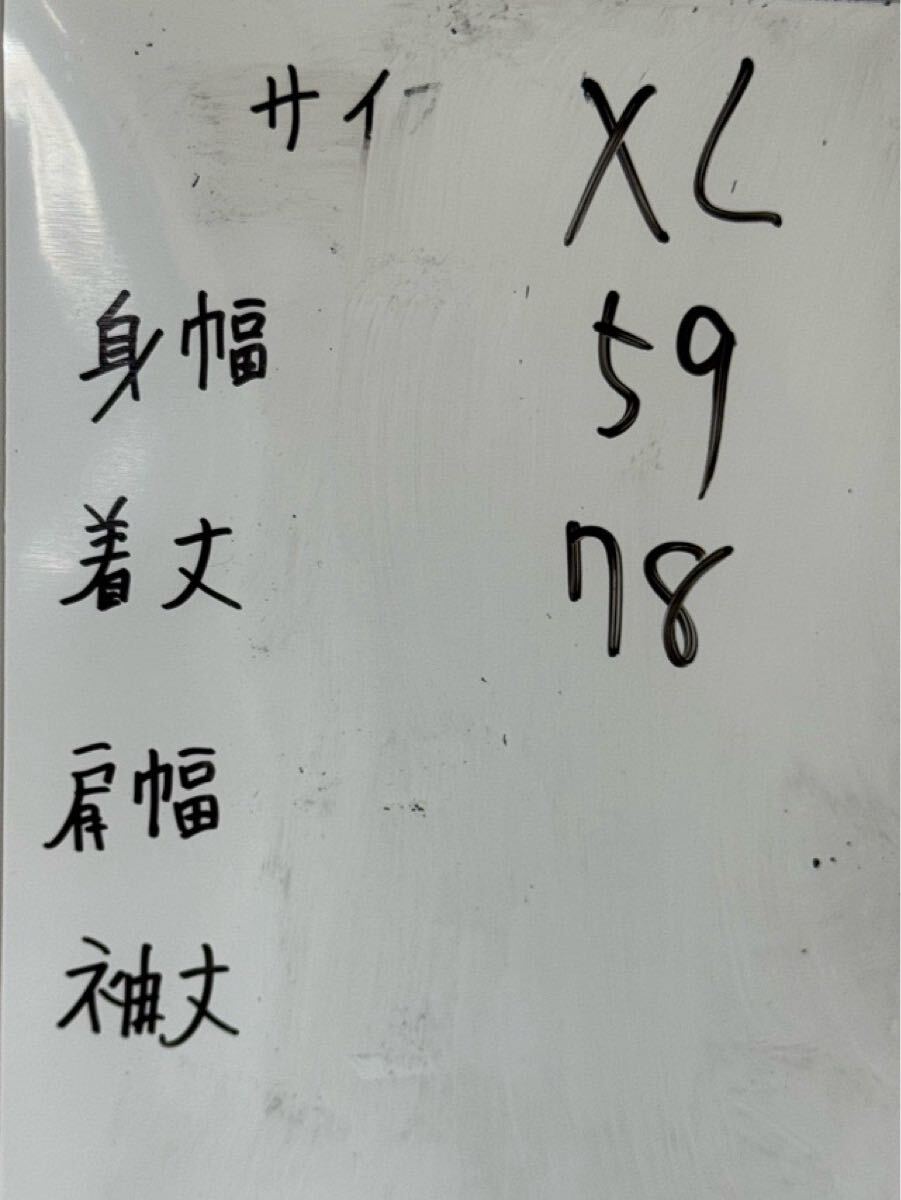 サイ XL
身幅 59
着丈 78
肩幅
袖丈